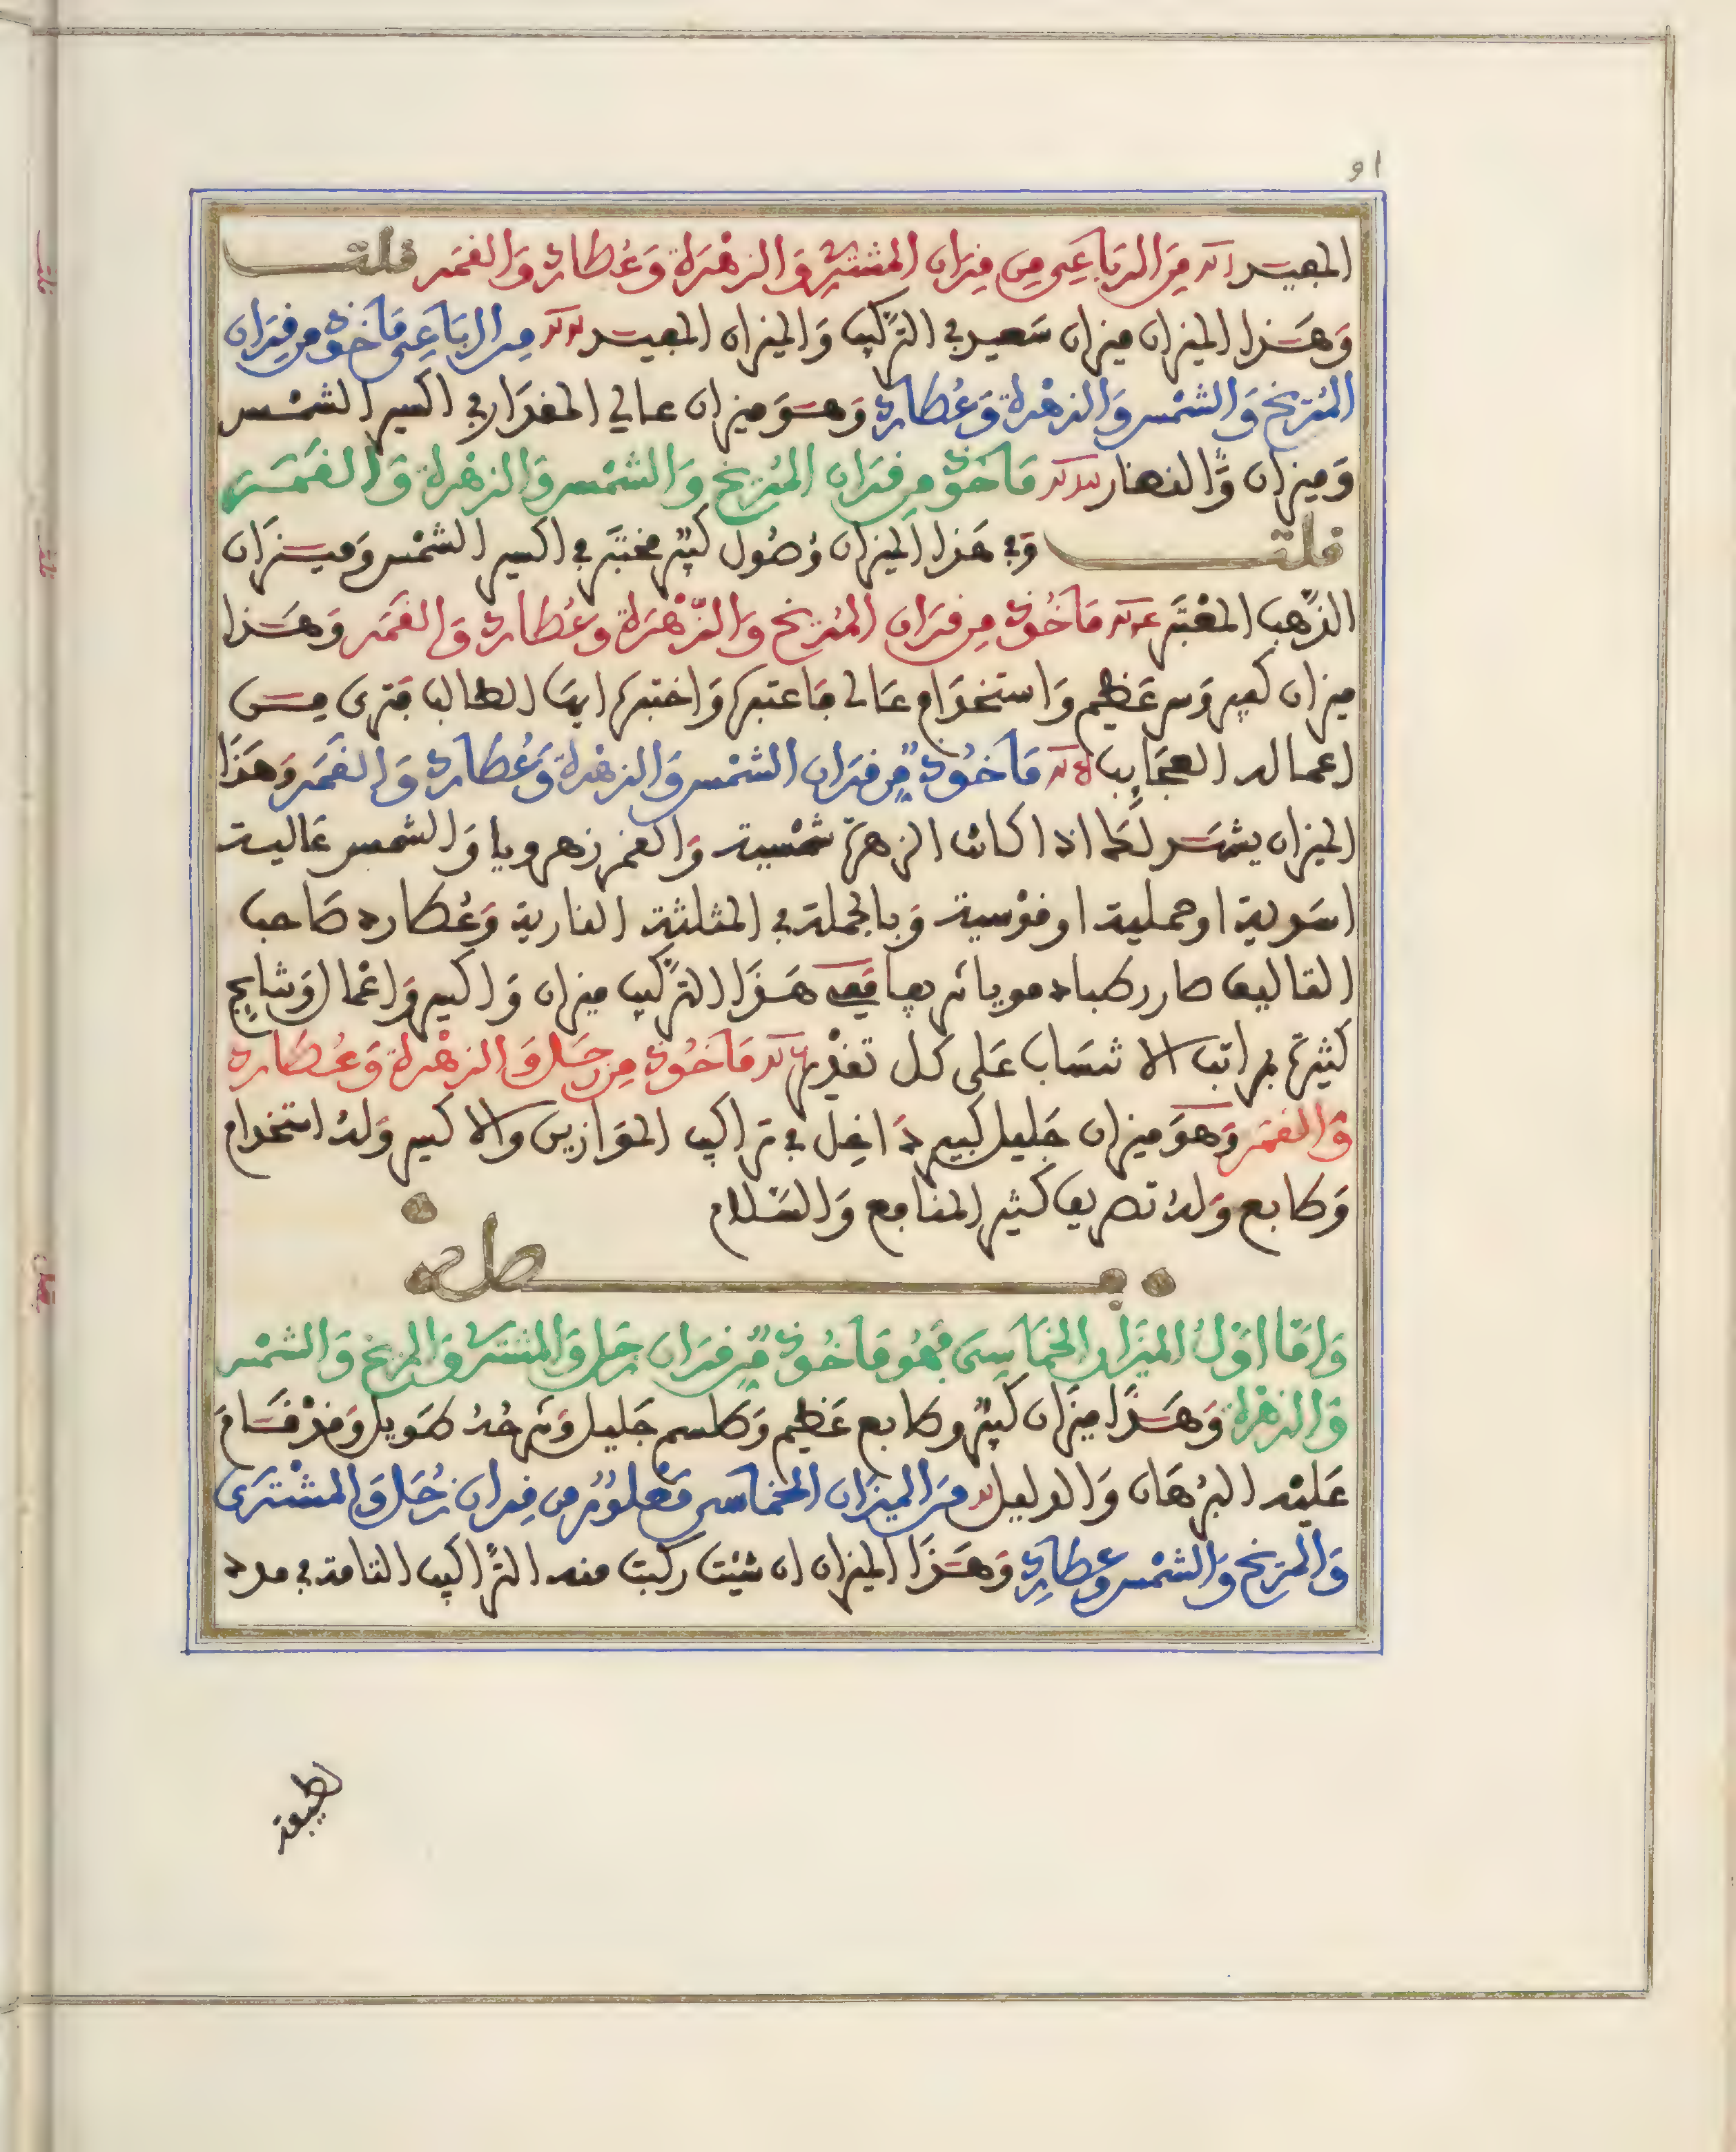 المفيد من الرباعي من قران المشتري والزهرة وعطارد والقمر قلت
وهذا الميزان ميزان سعيد في التركيب والميزان المفيد من الرباعي ماخوذ من قران
المريخ والشمس والزهرة وعطارد وهو ميزان عالي المقدار في اكسير الشمس
وميزان والنضار ماخوذ من قران المريخ والشمس والزهرة والقمر
قلت وفي هذا الميزان وصول كبير مختبر في اكسير الشمس وميزان
الذهب المعتبر ماخوذ من قران المريخ والزهرة وعطارد والقمر وهذا
ميزان كبير وسر عظيم واستخدام عالى فاعتبره واختبره ايها الطالب فترى من
اعماله العجايب ماخوذ من قران الشمس والزهرة وعطارد والقمر وهذا
الميزان يشهد لك اذا كانت الزهرة شمسية والقمر زهرويا والشمس عالية
اسدية او حملية او قوسية وبالجملة في المثلثة النارية وعطارد صاحب
التاليف صار رطبا دمويا شريفا ففي هذا التركيب ميزان واكسير واعمال ونتايج
كثيرة بمراتب الانتساب على كل تقدير ماخوذ من زحل والزهرة وعطارد
والقمر وهو ميزان جليل كبير داخل في تراكيب الموازين والاكسير وله استخدام
وطابع وله تصريف كثير المنافع والسلام
فصل
واما اول الميزان الخماسى فهو ماخوذ من قران زحل والمشترى والمريخ والشمس
والزهرة وهذا ميزان كبير وطابع عظيم وطلسم جليل وشرحه طويل وقد قام
عليه البرهان والدليل من الميزان الخماسى معلوم من قران زحل والمشترى
والمريخ والشمس وعطارد وهذا الميزان ان شيت ركبت منه التراكيب التامة في مدد
لطيفة